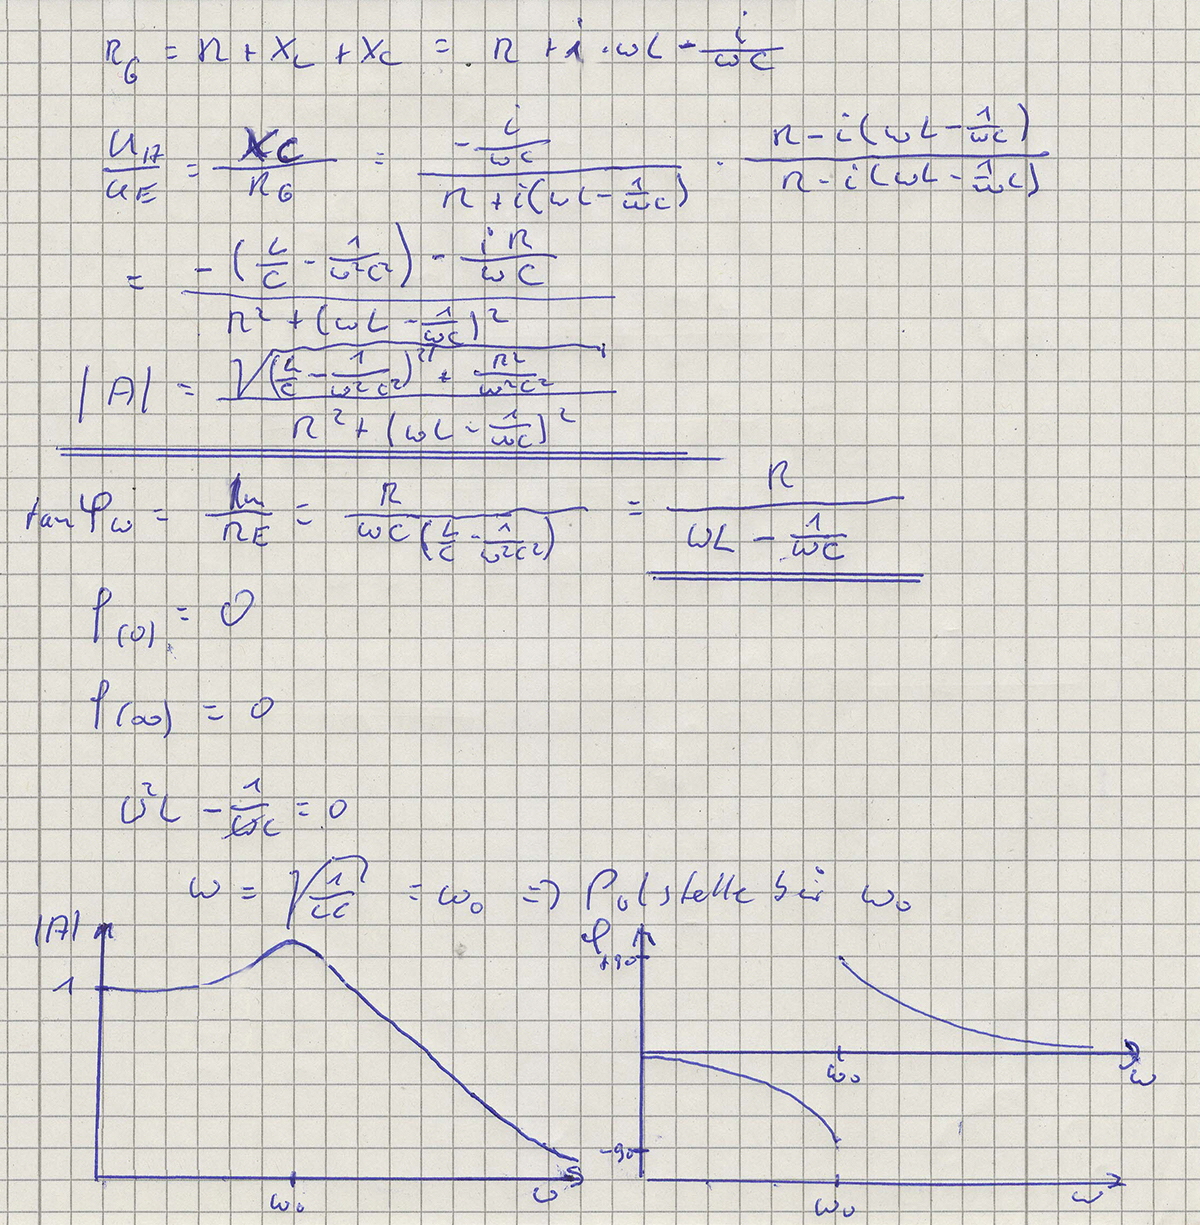 R_G = R + X_L + X_C = R + i · ωL - i/(ωC)
U_A/U_E = X_C/R_G = (-i/(ωC))/(R + i(ωL - 1/(ωC))) · (R - i(ωL - 1/(ωC)))/(R - i(ωL - 1/(ωC)))
= (-(L/C - 1/(ω²C²)) - iR/(ωC))/(R² + (ωL - 1/(ωC))²)
|A| = √((L/C - 1/(ω²C²))² + R²/(ω²C²))/(R² + (ωL - 1/(ωC))²)
tan φ_ω = Im/RE = R/(ωC(L/C - 1/(ω²C²))) = R/(ωL - 1/(ωC))
φ_(0) = 0
φ_(∞) = 0
ω²L - 1/(ωC) = 0
ω = √(1/(LC)) = ω₀ ⇒ Polstelle bei ω₀
|A|
1
ω₀
ω
φ
+90
ω₀
ω
-90
ω₀
ω